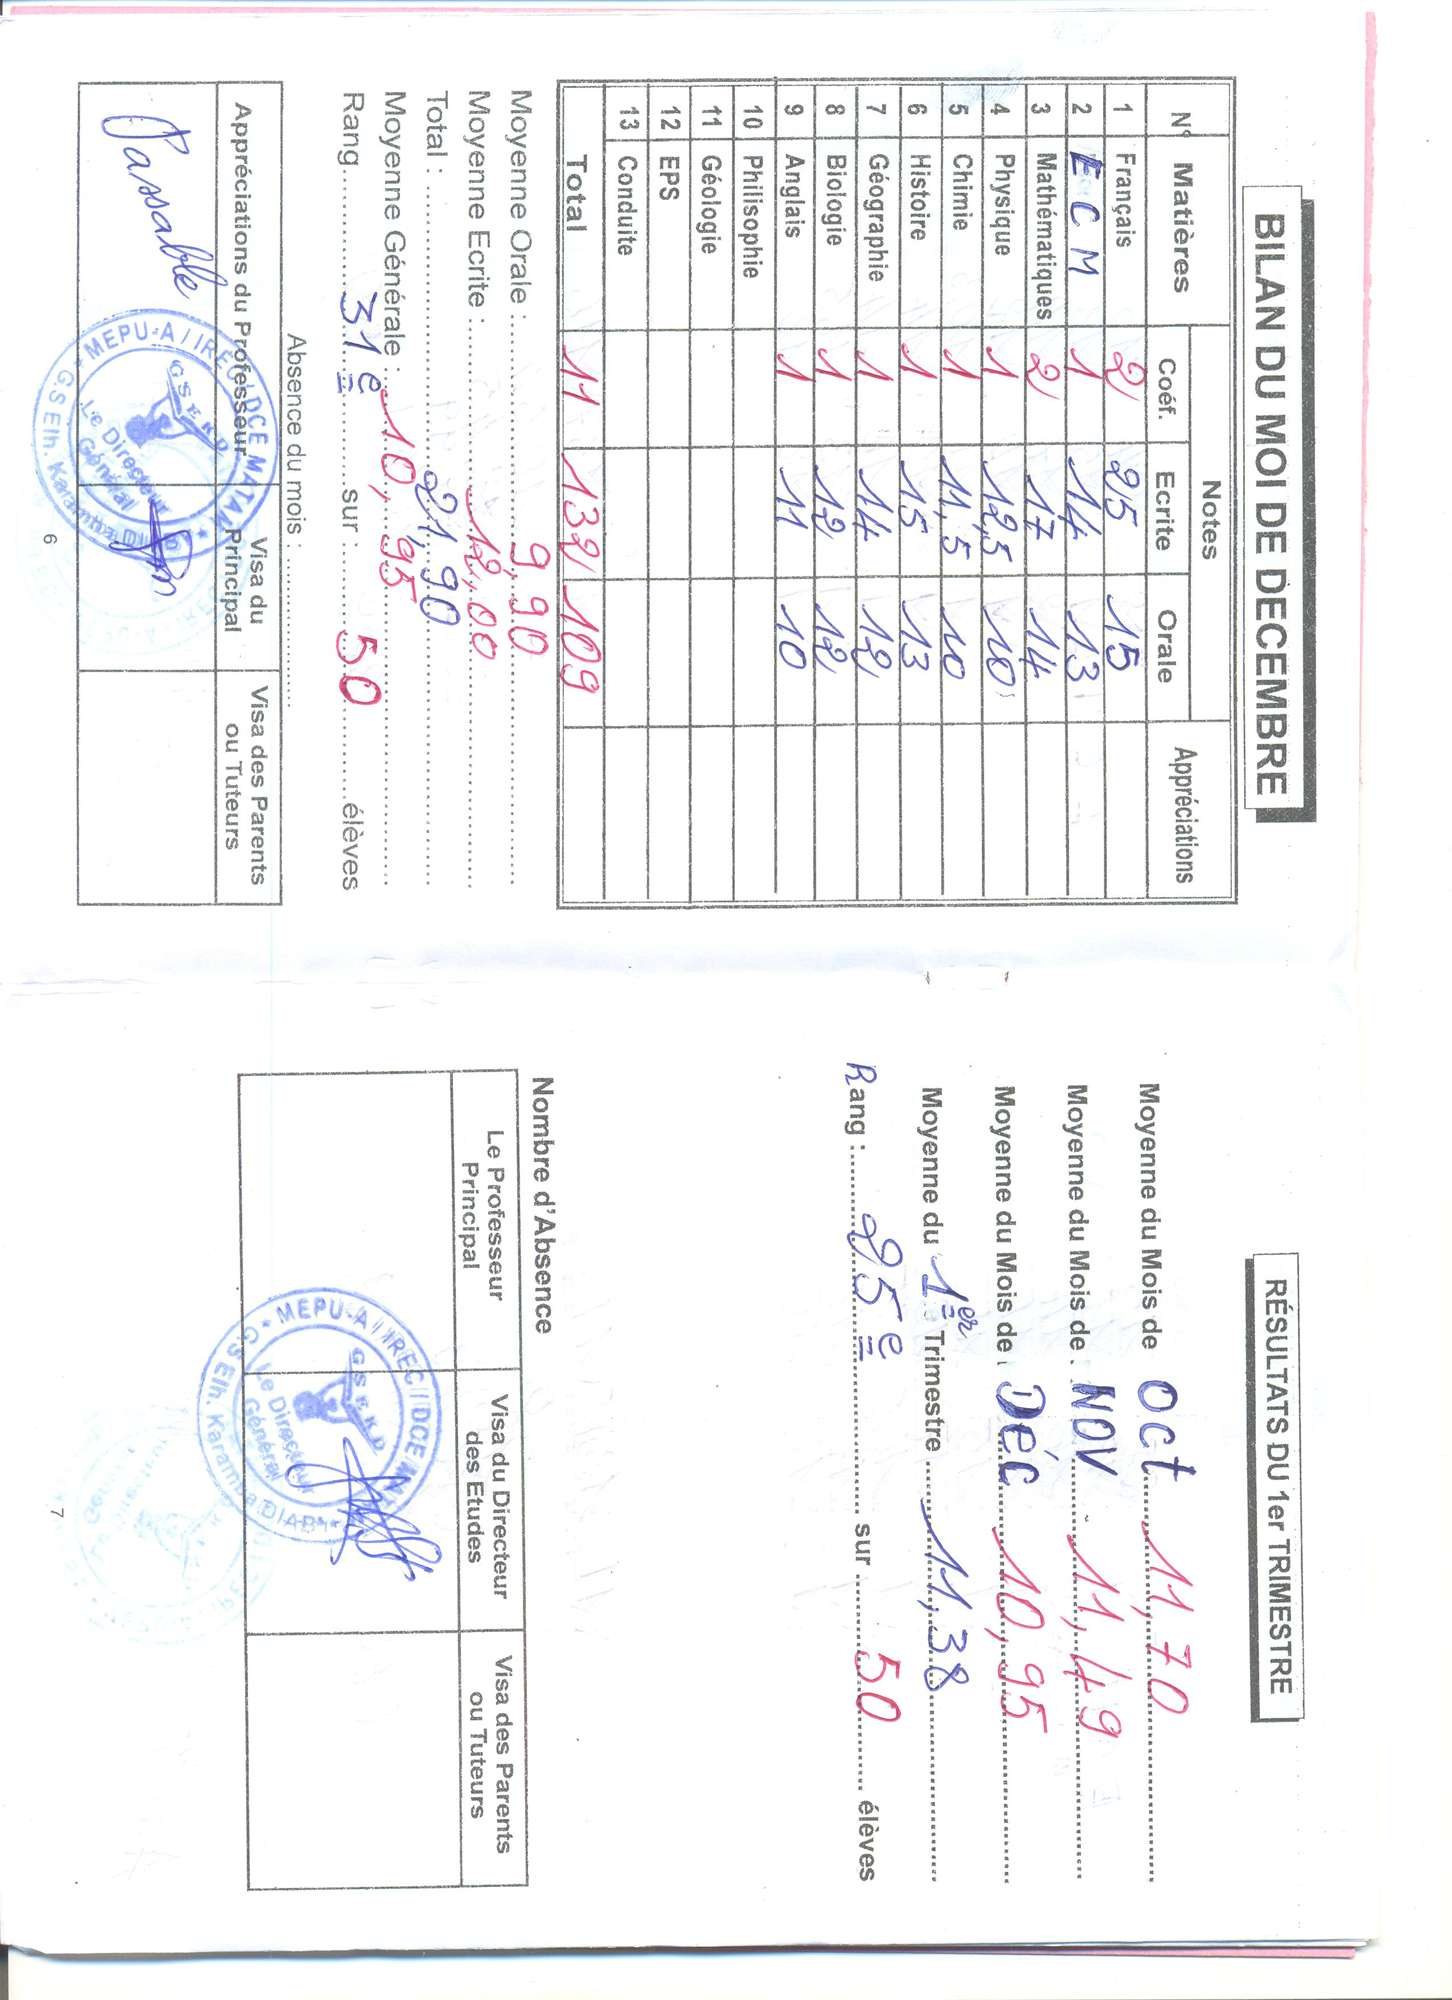 BILAN DU MOI DE DECEMBRE
N° Matières Notes Appréciations
Coéf. Ecrite Orale
1 Français 2 25 15
2 E C M 1 14 13
3 Mathématiques 2 17 14
4 Physique 1 12,5 10
5 Chimie 1 11,5 10
6 Histoire 1 15 13
7 Géographie 1 14 12
8 Biologie 1 12 12
9 Anglais 1 11 10
10 Philisophie
11 Géologie
12 EPS
13 Conduite
Total 11 132 109
Moyenne Orale : 9,90
Moyenne Ecrite : 12,00
Total : 21,90
Moyenne Générale : 10,95
Rang 31e sur : 50 élèves
Absence du mois :
Appréciations du Professeur Visa du Principal Visa des Parents ou Tuteurs
Passable
MEPU-A / IREC / DCE MATAM
GSEKD
Le Directeur
Général
G.S Elh. Karamba DIABY
6
RÉSULTATS DU 1er TRIMESTRE
Moyenne du Mois de Oct 11,70
Moyenne du Mois de : NOV 11,49
Moyenne du Mois de DÉC 10,95
Moyenne du 1er Trimestre 11,38
Rang : 25e sur 50 élèves
Nombre d'Absence
Le Professeur Principal Visa du Directeur des Etudes Visa des Parents ou Tuteurs
MEPU-A / IREC / DCE MATAM
GSEKD
Le Directeur
Général
G.S Elh. Karamba DIABY
7